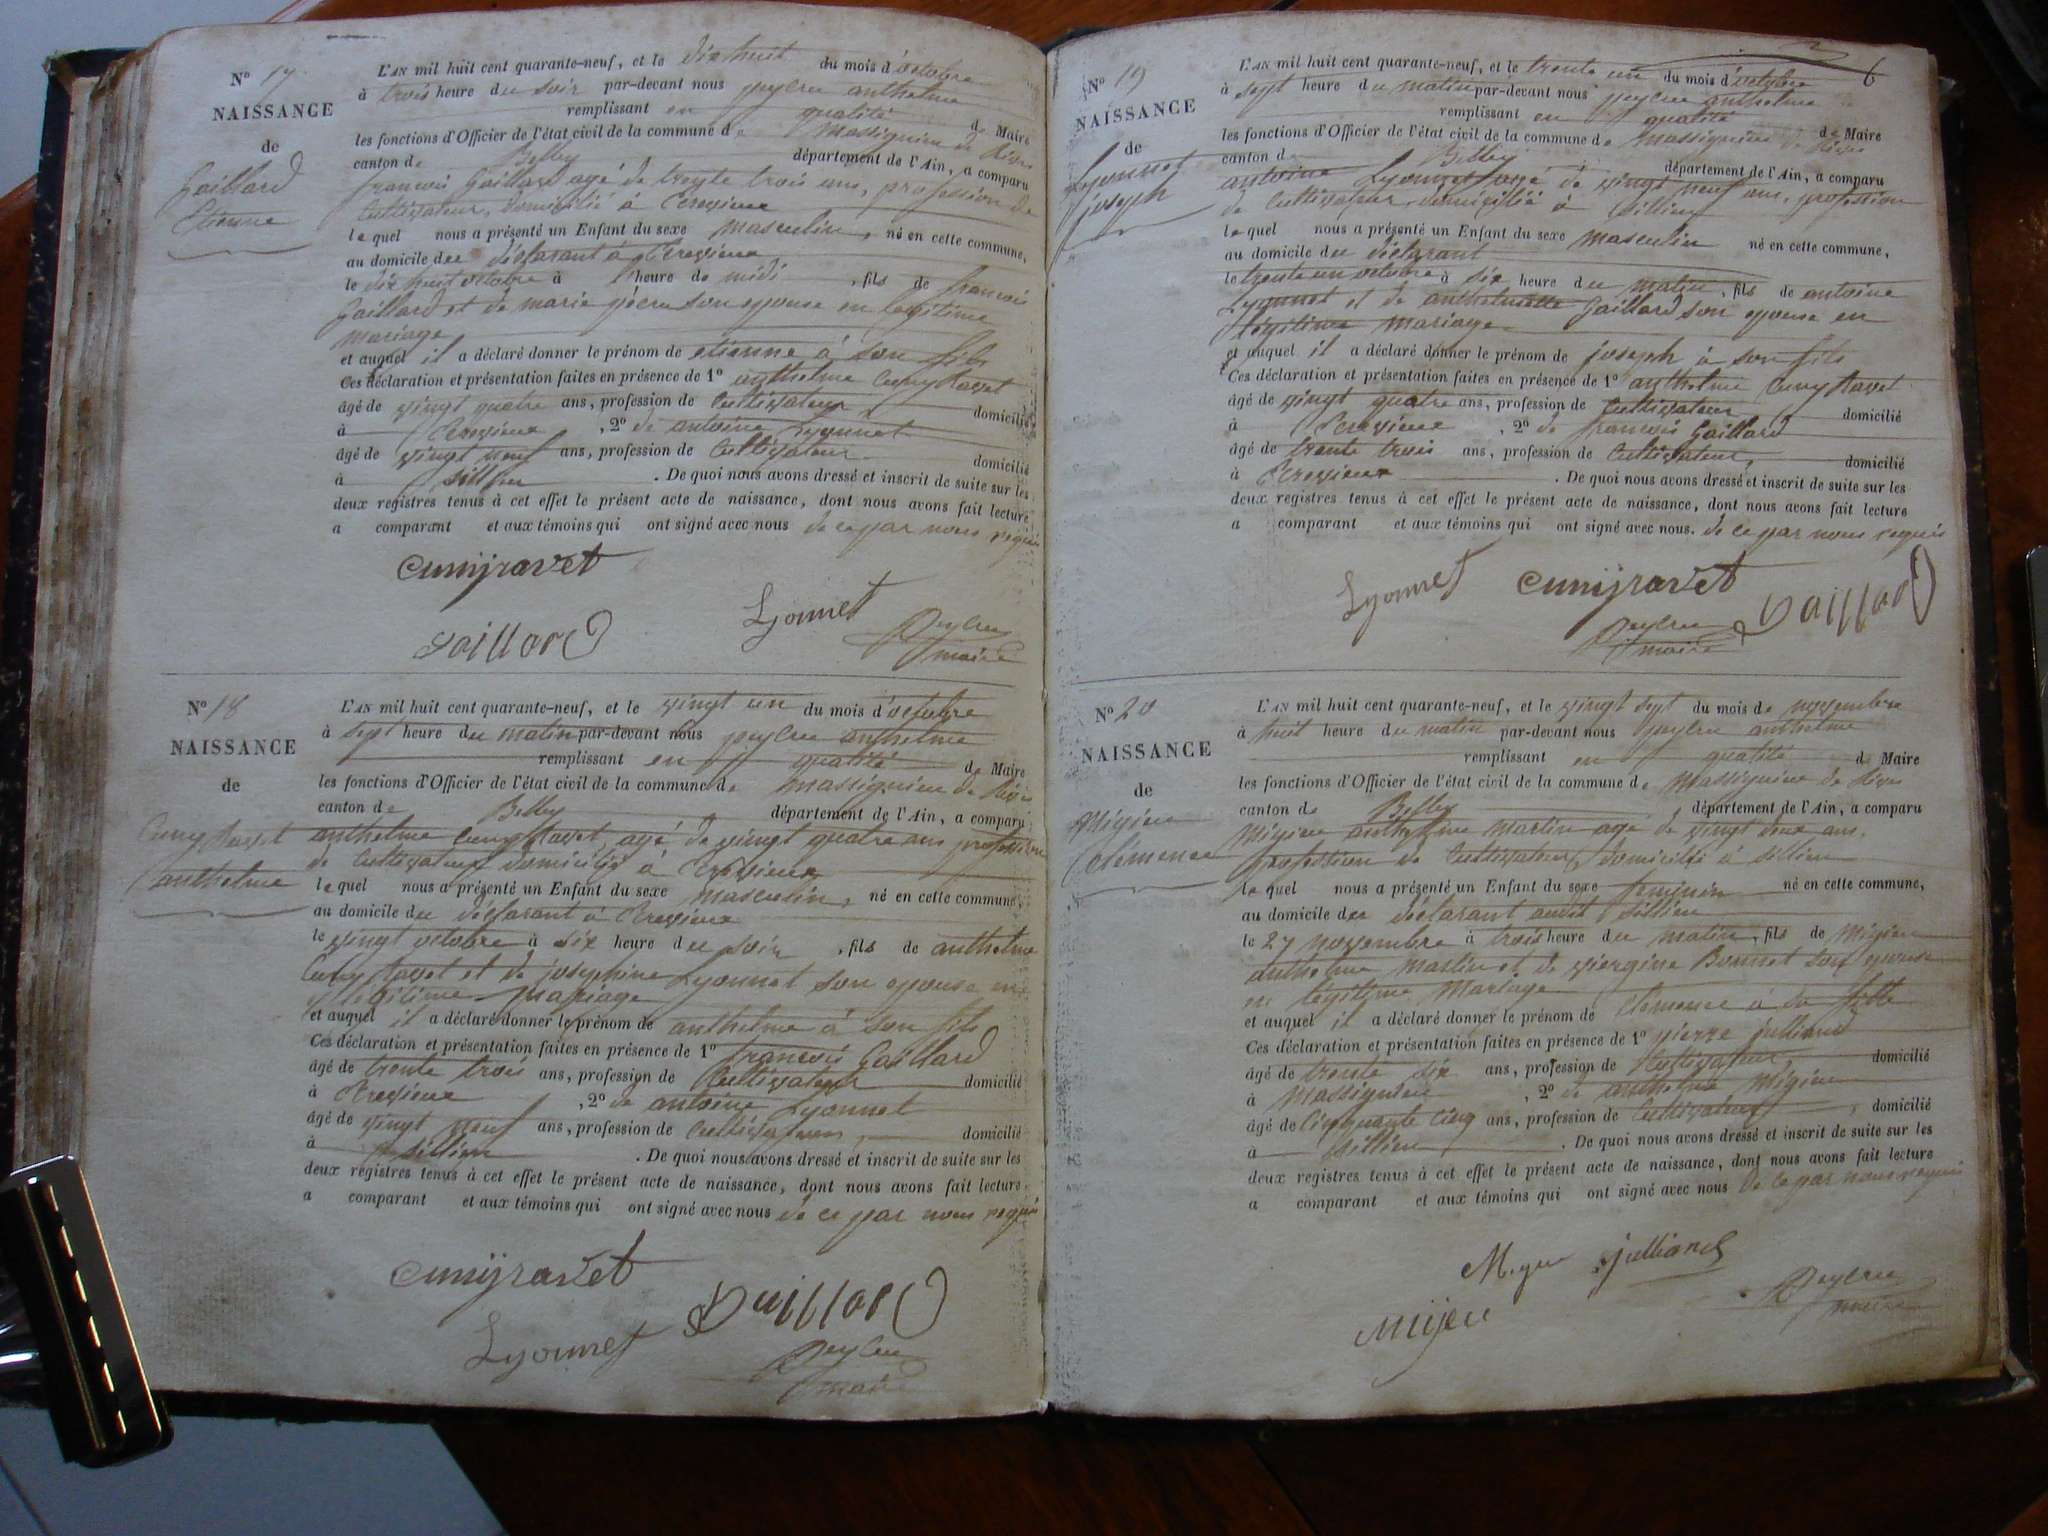 N° 17
NAISSANCE
de
Gaillard
Etienne
L'AN mil huit cent quarante-neuf, et le dix huit du mois d'octobre
à trois heure du soir par-devant nous peylru anthelme
remplissant en qualité de Maire
les fonctions d'Officier de l'état civil de la commune de Massignieu de Rives
canton de Belley département de l'Ain, a comparu
francois Gaillard agé de trente trois ans, profession de
Cultivateur, domicilié à Cressieux
lequel nous a présenté un Enfant du sexe masculin, né en cette commune,
au domicile du déclarant à Cressieux
le dix huit octobre à heure de midi, fils de francois
Gaillard et de marie son epouse en legitime
mariage
et auquel il a déclaré donner le prénom de etienne à son fils
Ces déclaration et présentation faites en présence de 1° anthelme Cuny Ravet
âgé de vingt quatre ans, profession de Cultivateur domicilié
à Cressieux, 2° de antoine Lyonnet
âgé de vingt neuf ans, profession de Cultivateur domicilié
à Sillien. De quoi nous avons dressé et inscrit de suite sur les
deux registres tenus à cet effet le présent acte de naissance, dont nous avons fait lecture
a comparant et aux témoins qui ont signé avec nous de ce par nous requis
Cunyravet
Gaillard
Lyonnet
Peylru
maire
N° 18
NAISSANCE
de
Cuny Ravet
anthelme
L'AN mil huit cent quarante-neuf, et le vingt un du mois d'octobre
à sept heure du matin par-devant nous peylru anthelme
remplissant en qualité de Maire
les fonctions d'Officier de l'état civil de la commune de Massignieu de Rives
canton de Belley département de l'Ain, a comparu
anthelme Cuny Ravet, agé de vingt quatre ans profession
de Cultivateur domicilié à Cressieux
lequel nous a présenté un Enfant du sexe masculin, né en cette commune,
au domicile du déclarant à Cressieux
le vingt octobre à six heure du soir, fils de anthelme
Cuny Ravet et de josephine Lyonnet son epouse en
legitime mariage
et auquel il a déclaré donner le prénom de anthelme à son fils
Ces déclaration et présentation faites en présence de 1° francois Gaillard
âgé de trente trois ans, profession de Cultivateur domicilié
à Cressieux, 2° de antoine Lyonnet
âgé de vingt neuf ans, profession de Cultivateur domicilié
à Sillien. De quoi nous avons dressé et inscrit de suite sur les
deux registres tenus à cet effet le présent acte de naissance, dont nous avons fait lecture
a comparant et aux témoins qui ont signé avec nous de ce par nous requis
Cunyravet
Gaillard
Lyonnet
Peylru
maire
6
N° 19
NAISSANCE
de
Lyonnet
joseph
L'AN mil huit cent quarante-neuf, et le trente un du mois d'octobre
à sept heure du matin par-devant nous peylru anthelme
remplissant en qualité de Maire
les fonctions d'Officier de l'état civil de la commune de Massignieu de Rives
canton de Belley département de l'Ain, a comparu
antoine Lyonnet agé de vingt neuf ans, profession
de Cultivateur domicilié à Sillien
lequel nous a présenté un Enfant du sexe masculin né en cette commune,
au domicile du déclarant
le trente un octobre à six heure du matin, fils de antoine
Lyonnet et de anthelmette Gaillard son epouse en
légitime mariage
et auquel il a déclaré donner le prénom de joseph à son fils
Ces déclaration et présentation faites en présence de 1° anthelme Cuny Ravet
âgé de vingt quatre ans, profession de Cultivateur domicilié
à Cressieux, 2° de francois Gaillard
âgé de trente trois ans, profession de Cultivateur, domicilié
à Cressieux. De quoi nous avons dressé et inscrit de suite sur les
deux registres tenus à cet effet le présent acte de naissance, dont nous avons fait lecture
a comparant et aux témoins qui ont signé avec nous. de ce par nous requis
Lyonnet Cunyravet
Gaillard
Peylru
maire
N° 20
NAISSANCE
de
Migieu
Clémence
L'AN mil huit cent quarante-neuf, et le vingt sept du mois de novembre
à huit heure du matin par-devant nous peylru anthelme
remplissant en qualité de Maire
les fonctions d'Officier de l'état civil de la commune de Massignieu de Rives
canton de Belley département de l'Ain, a comparu
Migieu anthelme martin agé de vingt deux ans,
profession de Cultivateur domicilié à Sillien
lequel nous a présenté un Enfant du sexe feminin né en cette commune,
au domicile du déclarant audit Sillien
le 27 novembre à trois heure du matin, fils de Migieu
anthelme martin et de viergine Bonnet son epouse
en légitime Mariage
et auquel il a déclaré donner le prénom de clemence à sa fille
Ces déclaration et présentation faites en présence de 1° pierre julliand
âgé de trente six ans, profession de Cultivateur, domicilié
à Massignieu, 2° de anthelme Migieu
âgé de Cinquante cinq ans, profession de Cultivateur, domicilié
à Sillien. De quoi nous avons dressé et inscrit de suite sur les
deux registres tenus à cet effet le présent acte de naissance, dont nous avons fait lecture
a comparant et aux témoins qui ont signé avec nous de ce par nous requis
julliand
Peylru
maire